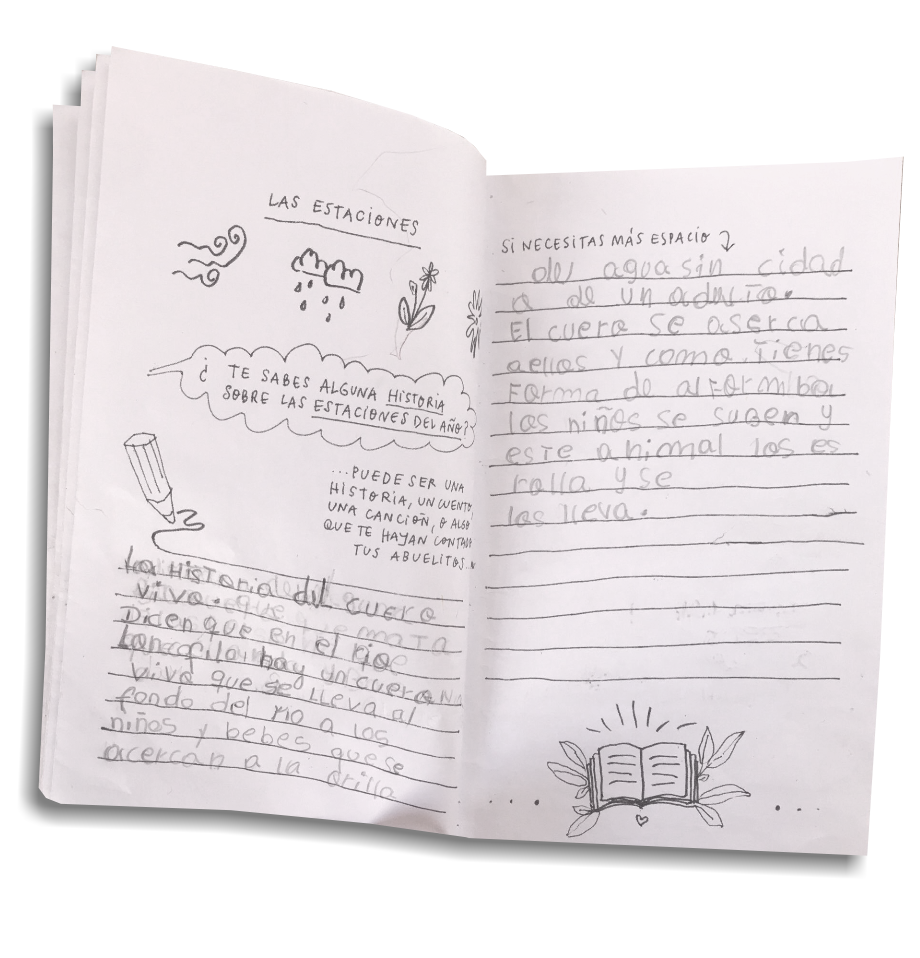 LAS ESTACIONES
¿ TE SABES ALGUNA HISTORIA
SOBRE LAS ESTACIONES DEL AÑO?
...PUEDE SER UNA
HISTORIA, UN CUENTO,
UNA CANCIÓN, O ALGO
QUE TE HAYAN CONTADO
TUS ABUELITOS...
La HisToria del cuero
vivo.
Dicen que en el rio
Longofilo hay un cuero
vivo que se lleva al
fondo del rio a los
niños y bebes que se
acercan a la orilla
SI NECESITAS MÁS ESPACIO
del agua sin cidad
o de un adulto.
El cuero se aserca
aellos y como Tienes
Forma de alformbra
los niños se suben y
esTe animal los es
rolla y se
los lleva.